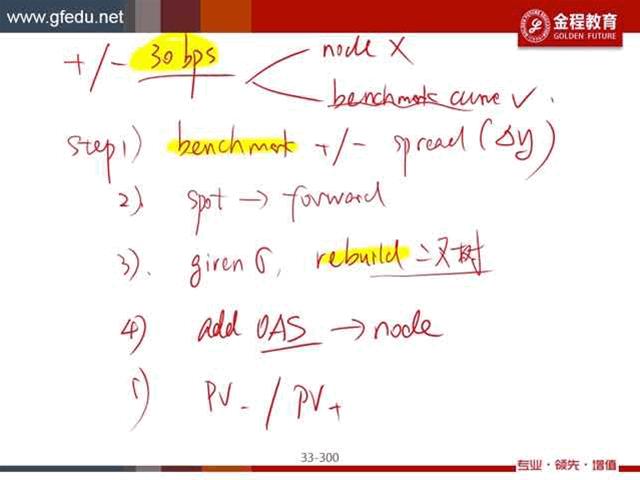 www.gfedu.net
金程教育
GOLDEN FUTURE
+/- 30 bps
node X
benchmark curve √.
Step 1) benchmark +/- spread (Δy)
2) spot → forward
3). given σ, rebuild 二叉树
4) add OAS → node
5) PV- / PV+
33-300
专业·领先·增值